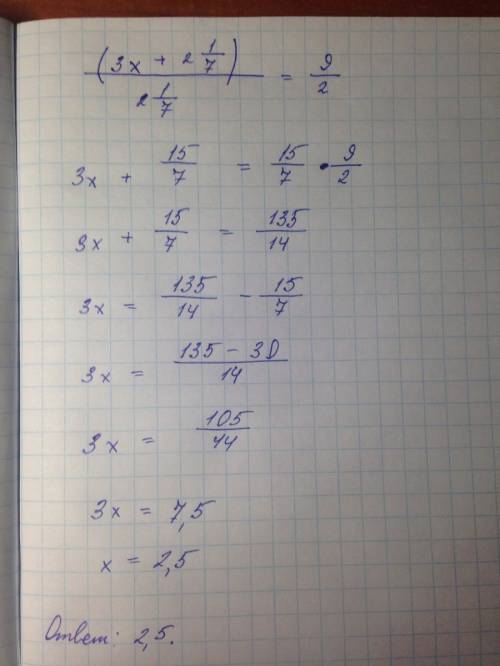 (3x + 2 1/7) / 2 1/7 = 9/2
3x + 15/7 = 15/7 • 9/2
3x + 15/7 = 135/14
3x = 135/14 - 15/7
3x = 135 - 30 / 14
3x = 105/14
3x = 7,5
x = 2,5
Ответ: 2,5.